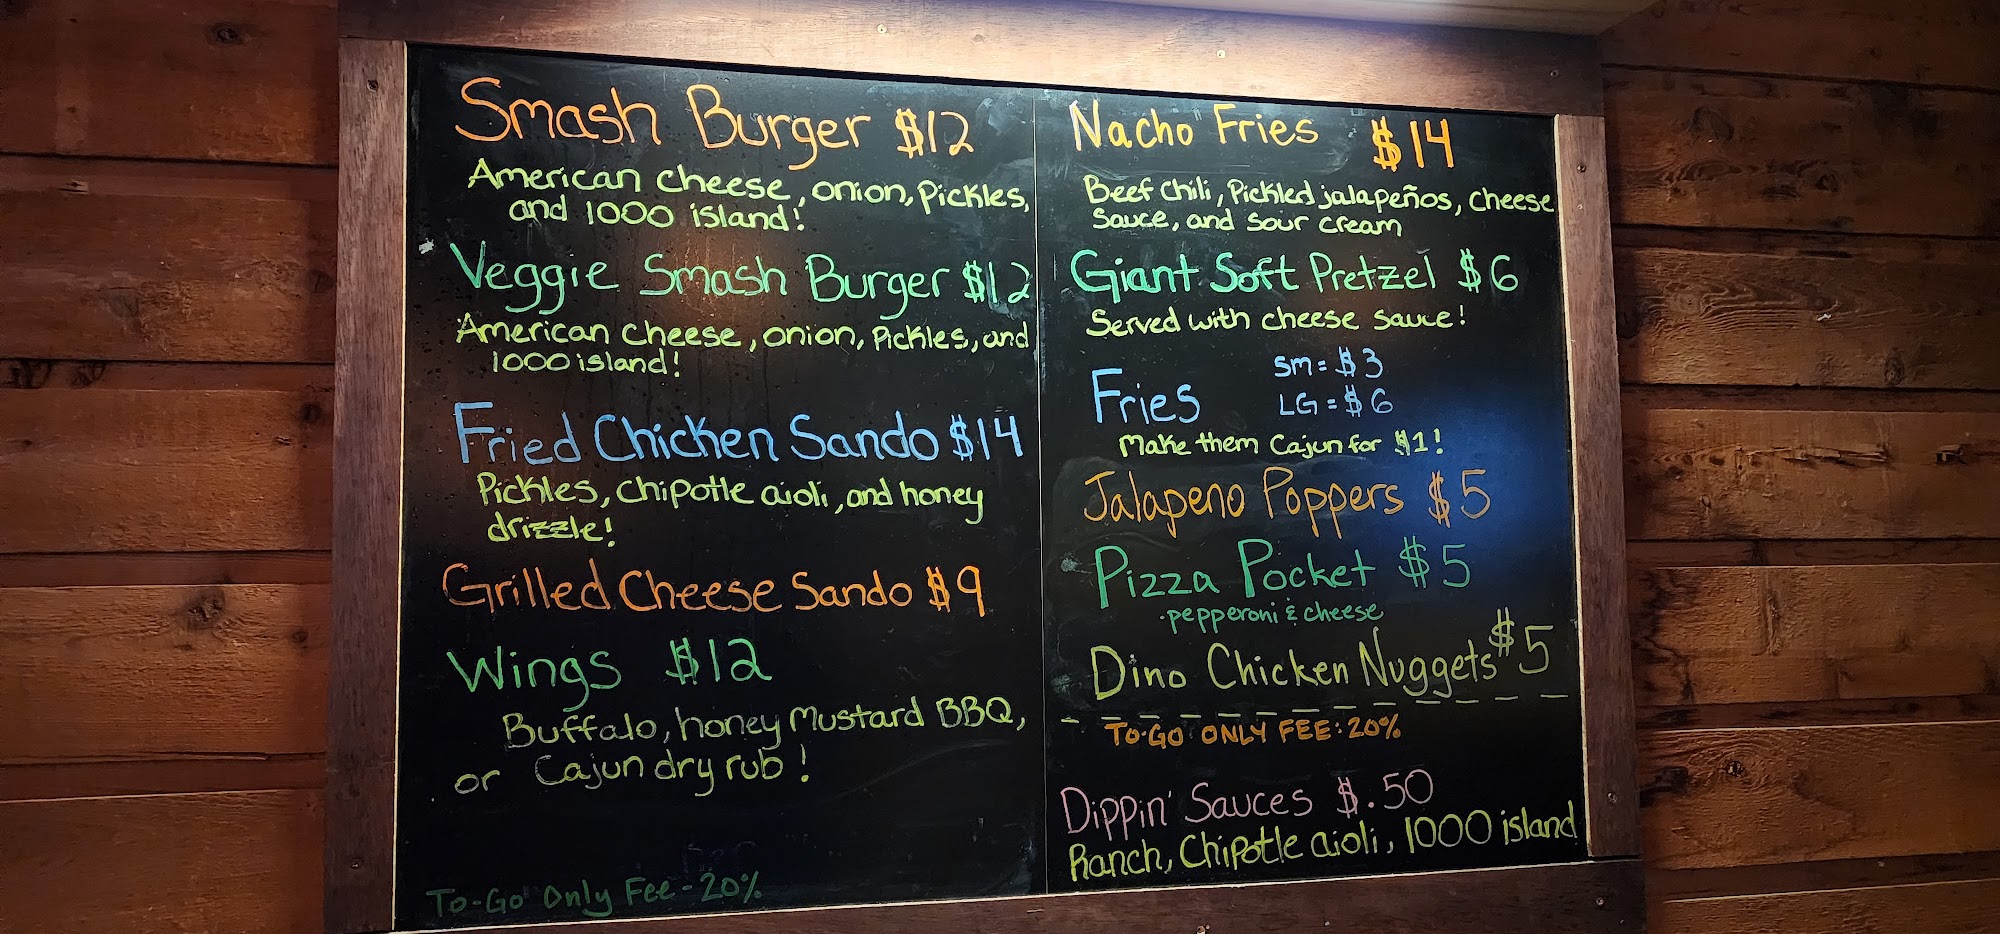 Smash Burger $12
American cheese, onion, pickles,
and 1000 island!
Veggie Smash Burger $12
American cheese, onion, pickles, and
1000 island!
Fried Chicken Sando $14
Pickles, chipotle aioli, and honey
drizzle!
Grilled Cheese Sando $9
Wings $12
Buffalo, honey mustard BBQ,
or Cajun dry rub!
To-Go Only Fee - 20%
Nacho Fries $14
Beef chili, pickled jalapeños, cheese
sauce, and sour cream
Giant Soft Pretzel $6
Served with cheese sauce!
Fries SM = $3
LG = $6
Make them Cajun for $1!
Jalapeno Poppers $5
Pizza Pocket $5
·pepperoni & cheese
Dino Chicken Nuggets $5
TO-GO ONLY FEE: 20%
Dippin' Sauces $.50
Ranch, Chipotle aioli, 1000 island